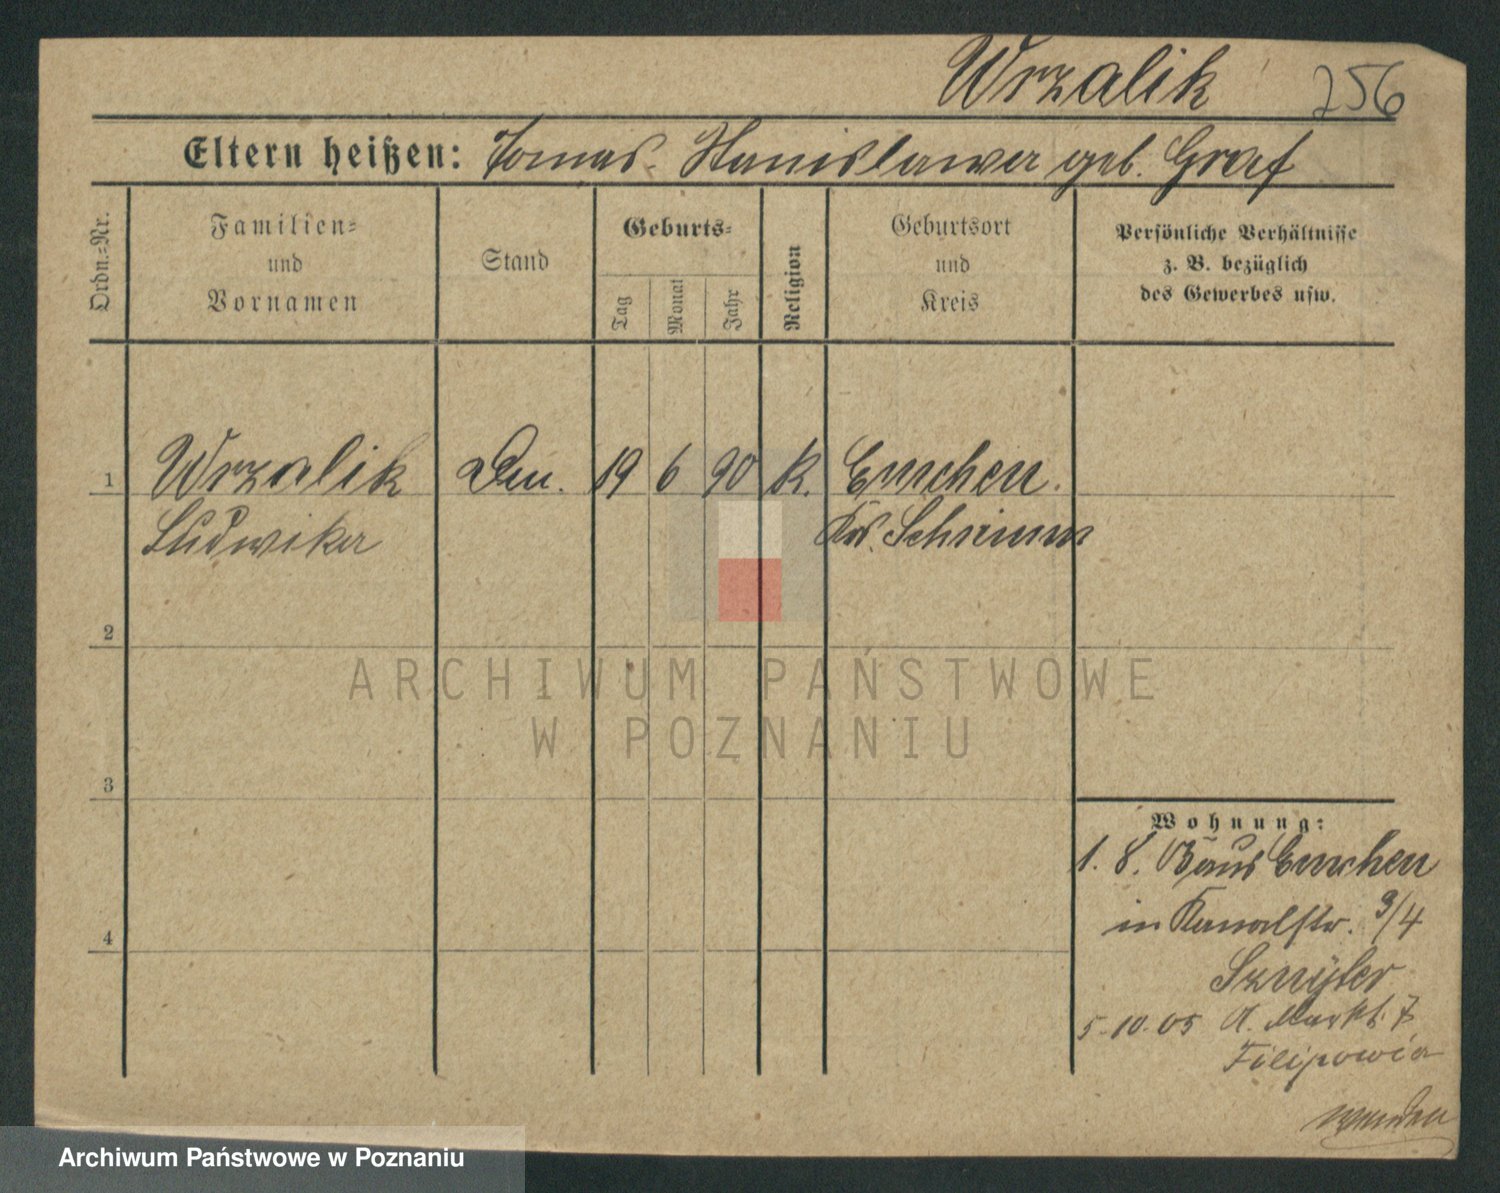 Wrzalik 256
Eltern heißen: Tomas. Stanislawa geb. Graf
Ordn.=Nr.
Familien=
und
Vornamen
Stand
Geburts=
Tag
Monat
Jahr
Religion
Geburtsort
und
Kreis
Persönliche Verhältnisse
z. B. bezüglich
des Gewerbes usw.
1 Wrzalik 19 6 90 k. Emchen.
Ludwika Krs. Schrimm
2
ARCHIWUM PAŃSTWOWE
W POZNANIU
3
Wohnung:
1. 8. 05 aus Emchen
in Kanalstr. 3/4
4
5.10.05 A. Markt. 7
Filipowia
wenden
Archiwum Państwowe w Poznaniu